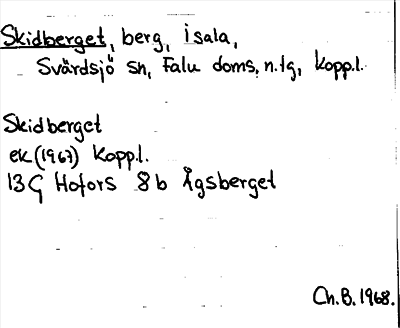 Skidberget, berg, Isala,
Svärdsjö sn, Falu doms. n. tg, Kopp.l.
Skidberget
ek (1967) Kopp.l.
13 G Hofors 8 b Ågsberget
Ch. B. 1968.